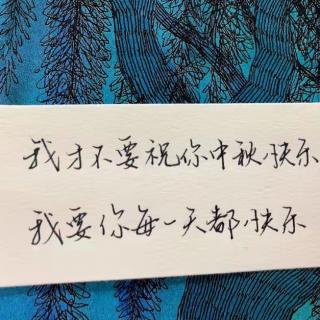 我才不要祝你中秋快乐
我要你每一天都快乐